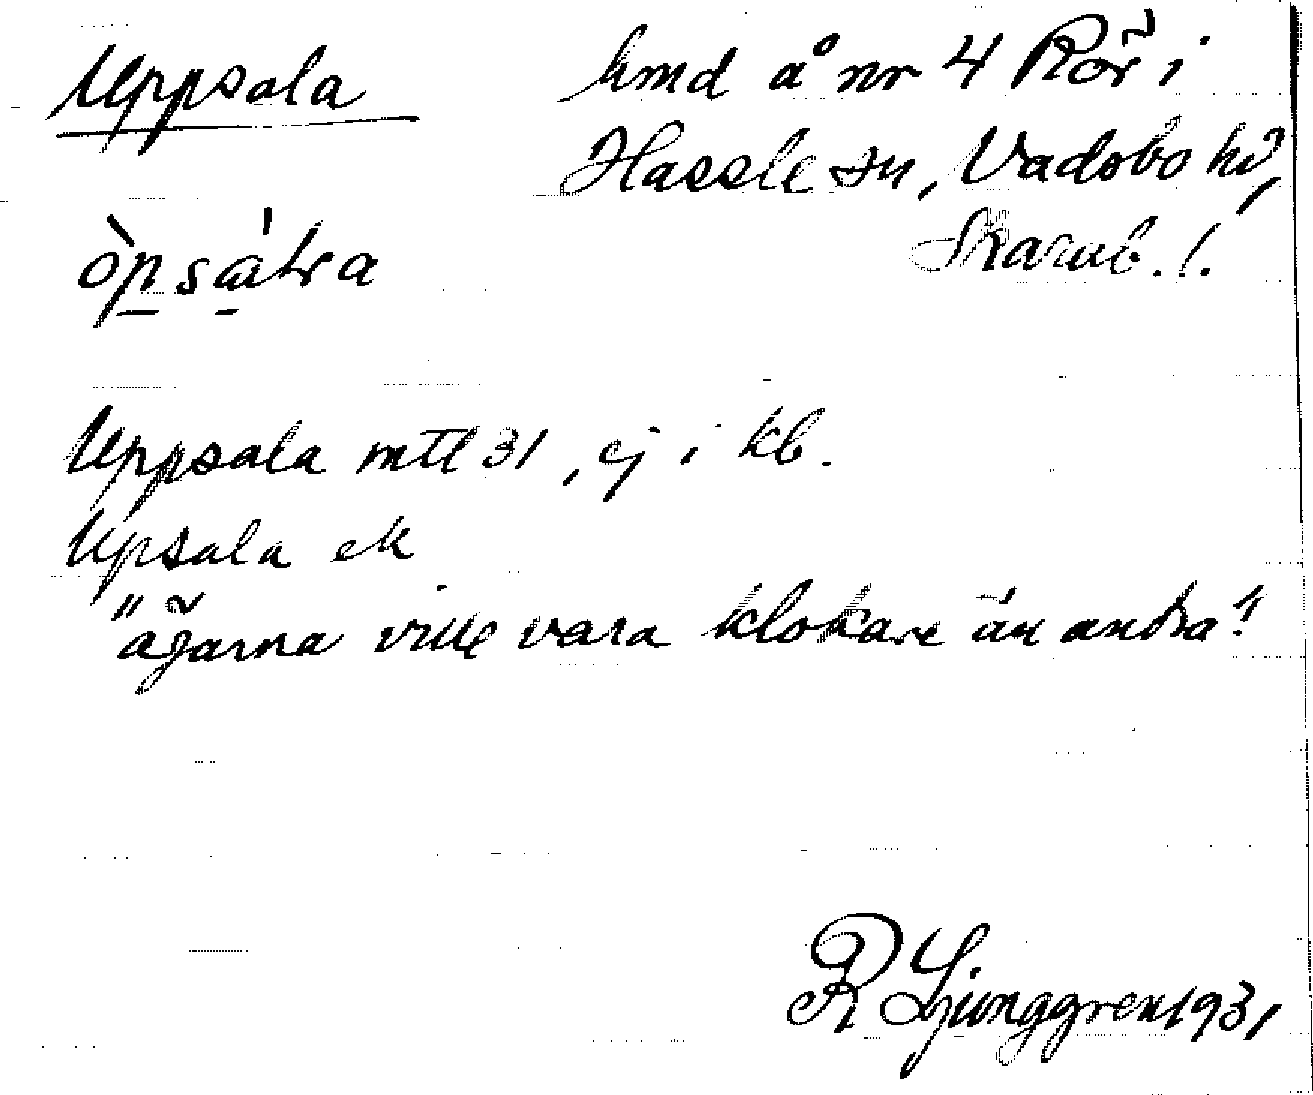 Uppsala
hmd å nr 4 Rör i
Hassle sn, Vadsbo hd,
Skarab. l.
òpsáLra
Uppsala mtl 31, ej i kb.
Upsala ek
"ägarna ville vara klokare än andra".
R Ljunggren 1931